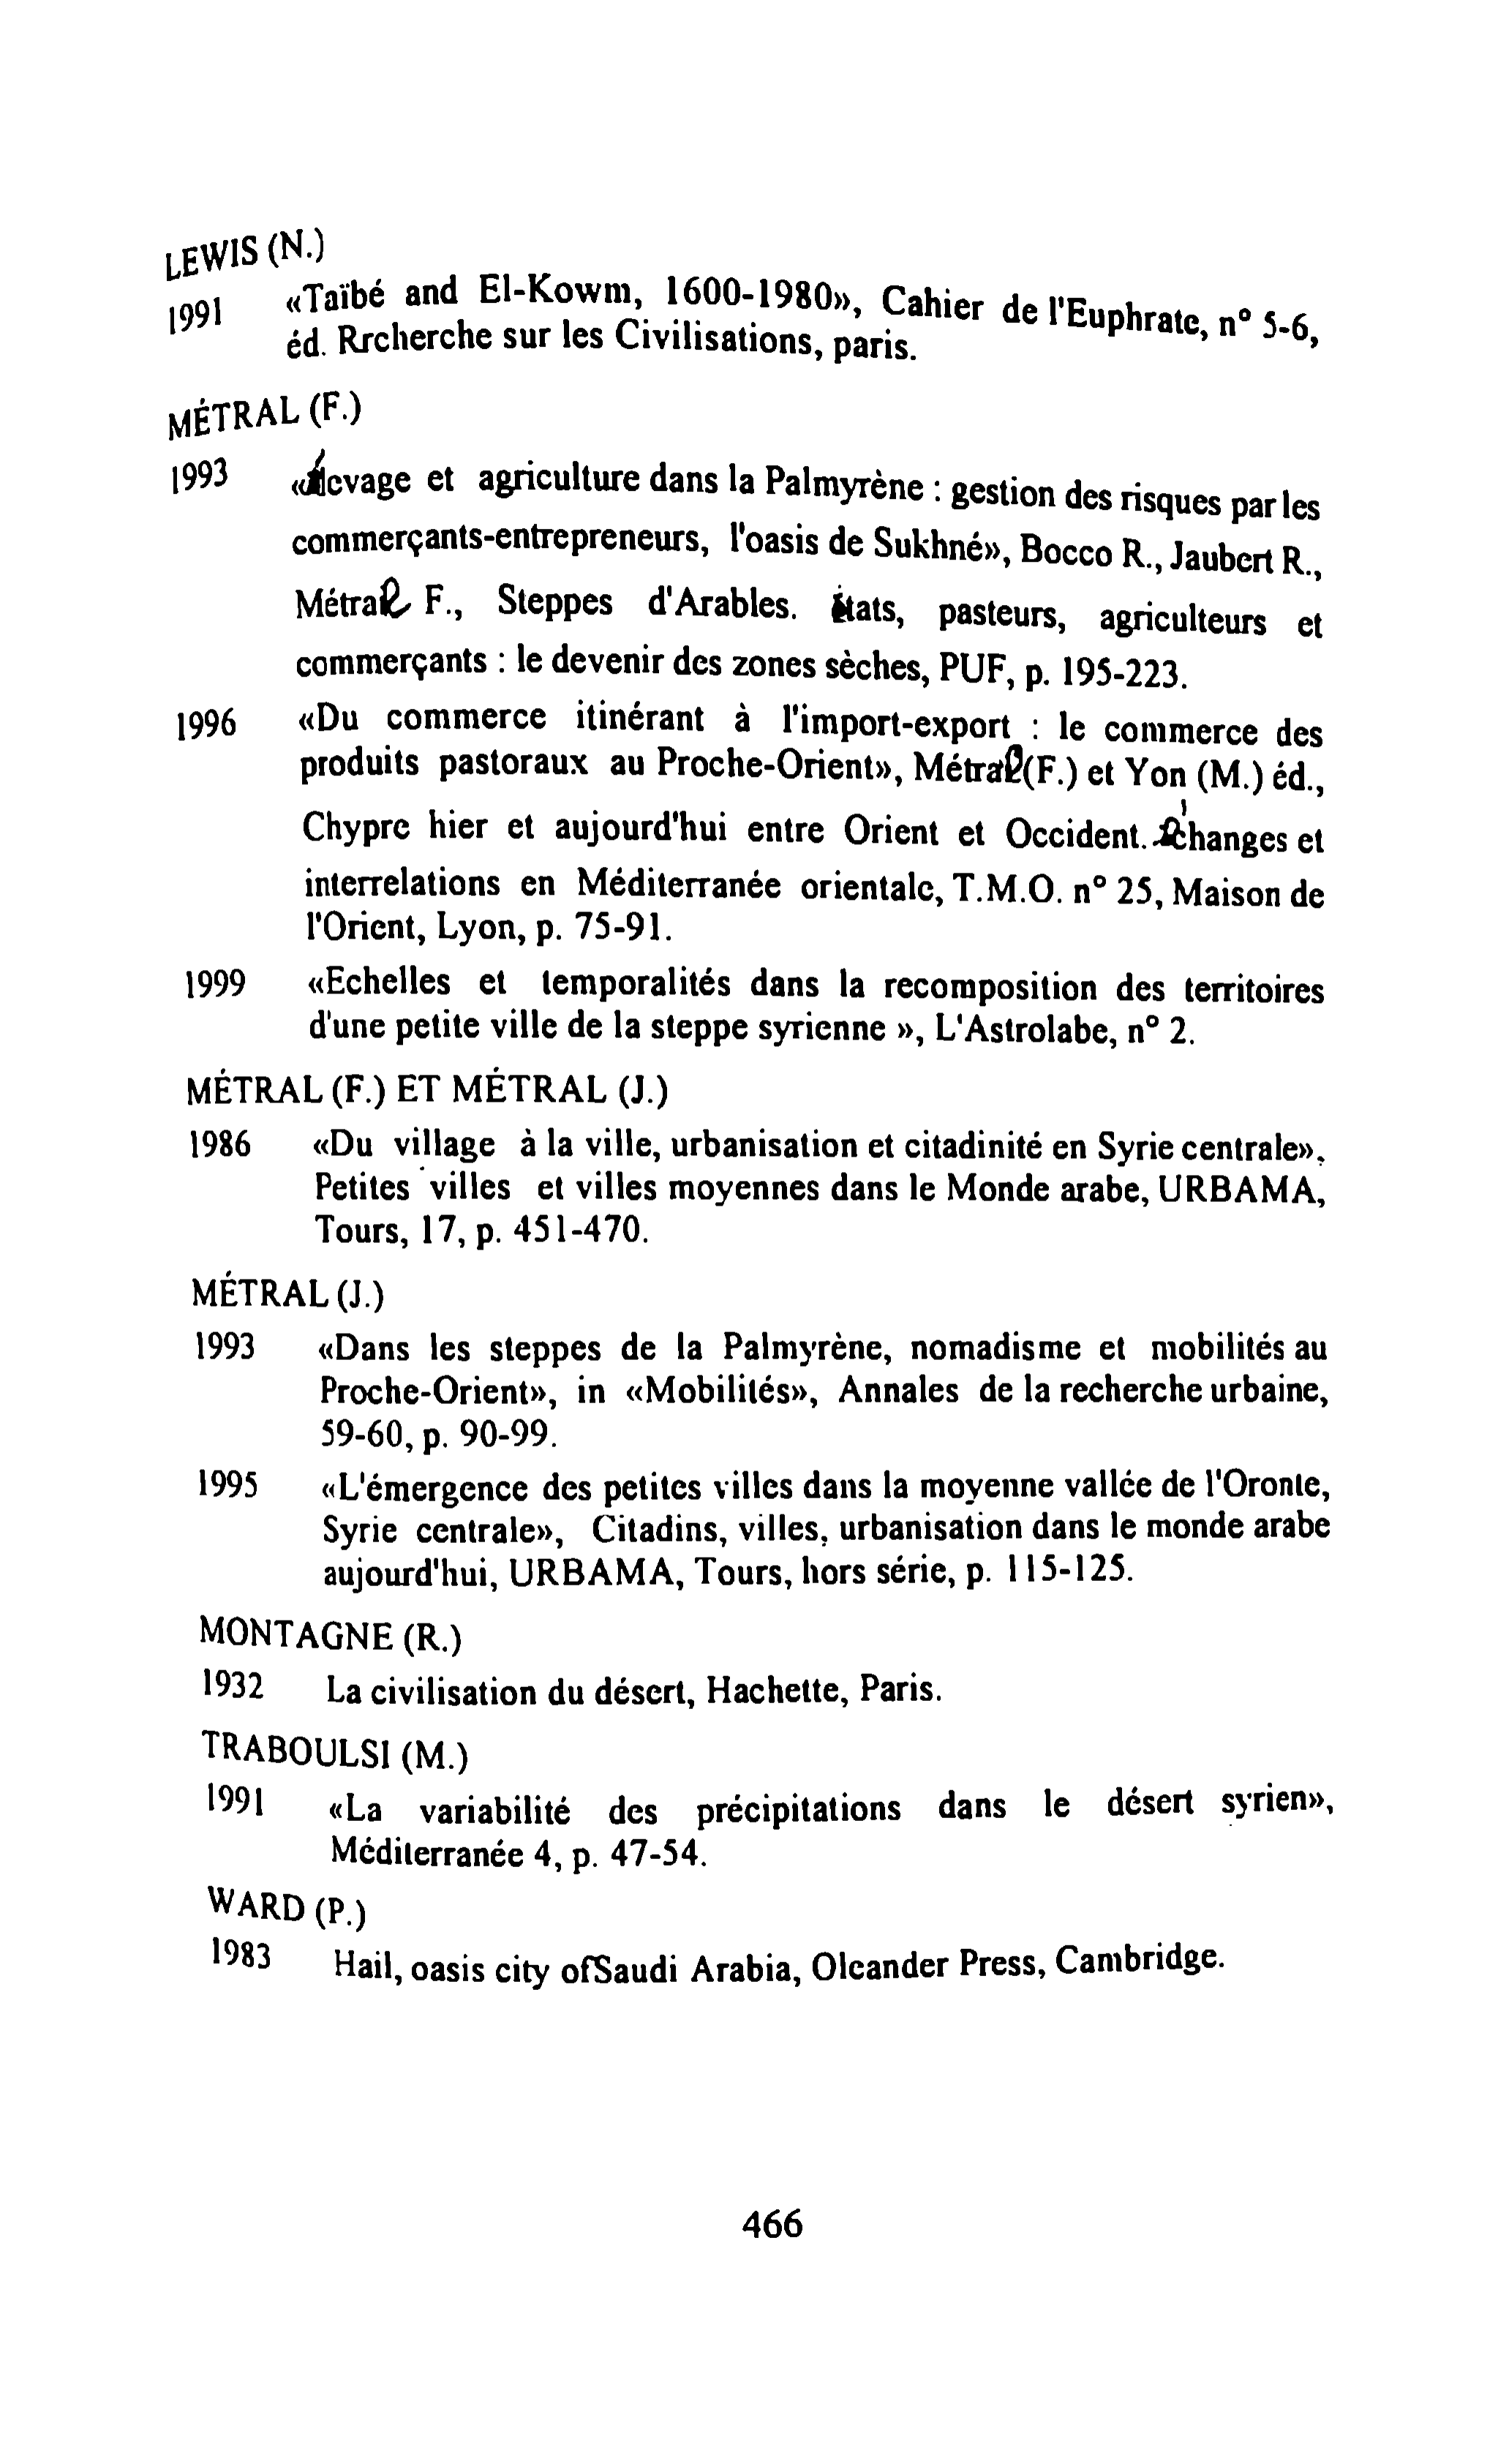 LEWIS (N.)
1991 «Taïbé and El-Kowm, 1600-1980», Cahier de l'Euphrate, n° 5-6,
éd. Rrcherche sur les Civilisations, paris.
MÉTRAL (F.)
1993 «Élevage et agriculture dans la Palmyrène : gestion des risques par les
commerçants-entrepreneurs, l'oasis de Sukhné», Bocco R., Jaubert R.,
Métral F., Steppes d'Arables. États, pasteurs, agriculteurs et
commerçants : le devenir des zones sèches, PUF, p. 195-223.
1996 «Du commerce itinérant à l'import-export : le commerce des
produits pastoraux au Proche-Orient», Métral (F.) et Yon (M.) éd.,
Chypre hier et aujourd'hui entre Orient et Occident. Échanges et
interrelations en Méditerranée orientale, T.M.O. n° 25, Maison de
l'Orient, Lyon, p. 75-91.
1999 «Echelles et temporalités dans la recomposition des territoires
d'une petite ville de la steppe syrienne », L'Astrolabe, n° 2.
MÉTRAL (F.) ET MÉTRAL (J.)
1986 «Du village à la ville, urbanisation et citadinité en Syrie centrale»,
Petites villes et villes moyennes dans le Monde arabe, URBAMA,
Tours, 17, p. 451-470.
MÉTRAL (J.)
1993 «Dans les steppes de la Palmyrène, nomadisme et mobilités au
Proche-Orient», in «Mobilités», Annales de la recherche urbaine,
59-60, p. 90-99.
1995 «L'émergence des petites villes dans la moyenne vallée de l'Oronte,
Syrie centrale», Citadins, villes, urbanisation dans le monde arabe
aujourd'hui, URBAMA, Tours, hors série, p. 115-125.
MONTAGNE (R.)
1932 La civilisation du désert, Hachette, Paris.
TRABOULSI (M.)
1991 «La variabilité des précipitations dans le désert syrien»,
Méditerranée 4, p. 47-54.
WARD (P.)
1983 Hail, oasis city ofSaudi Arabia, Oleander Press, Cambridge.
466